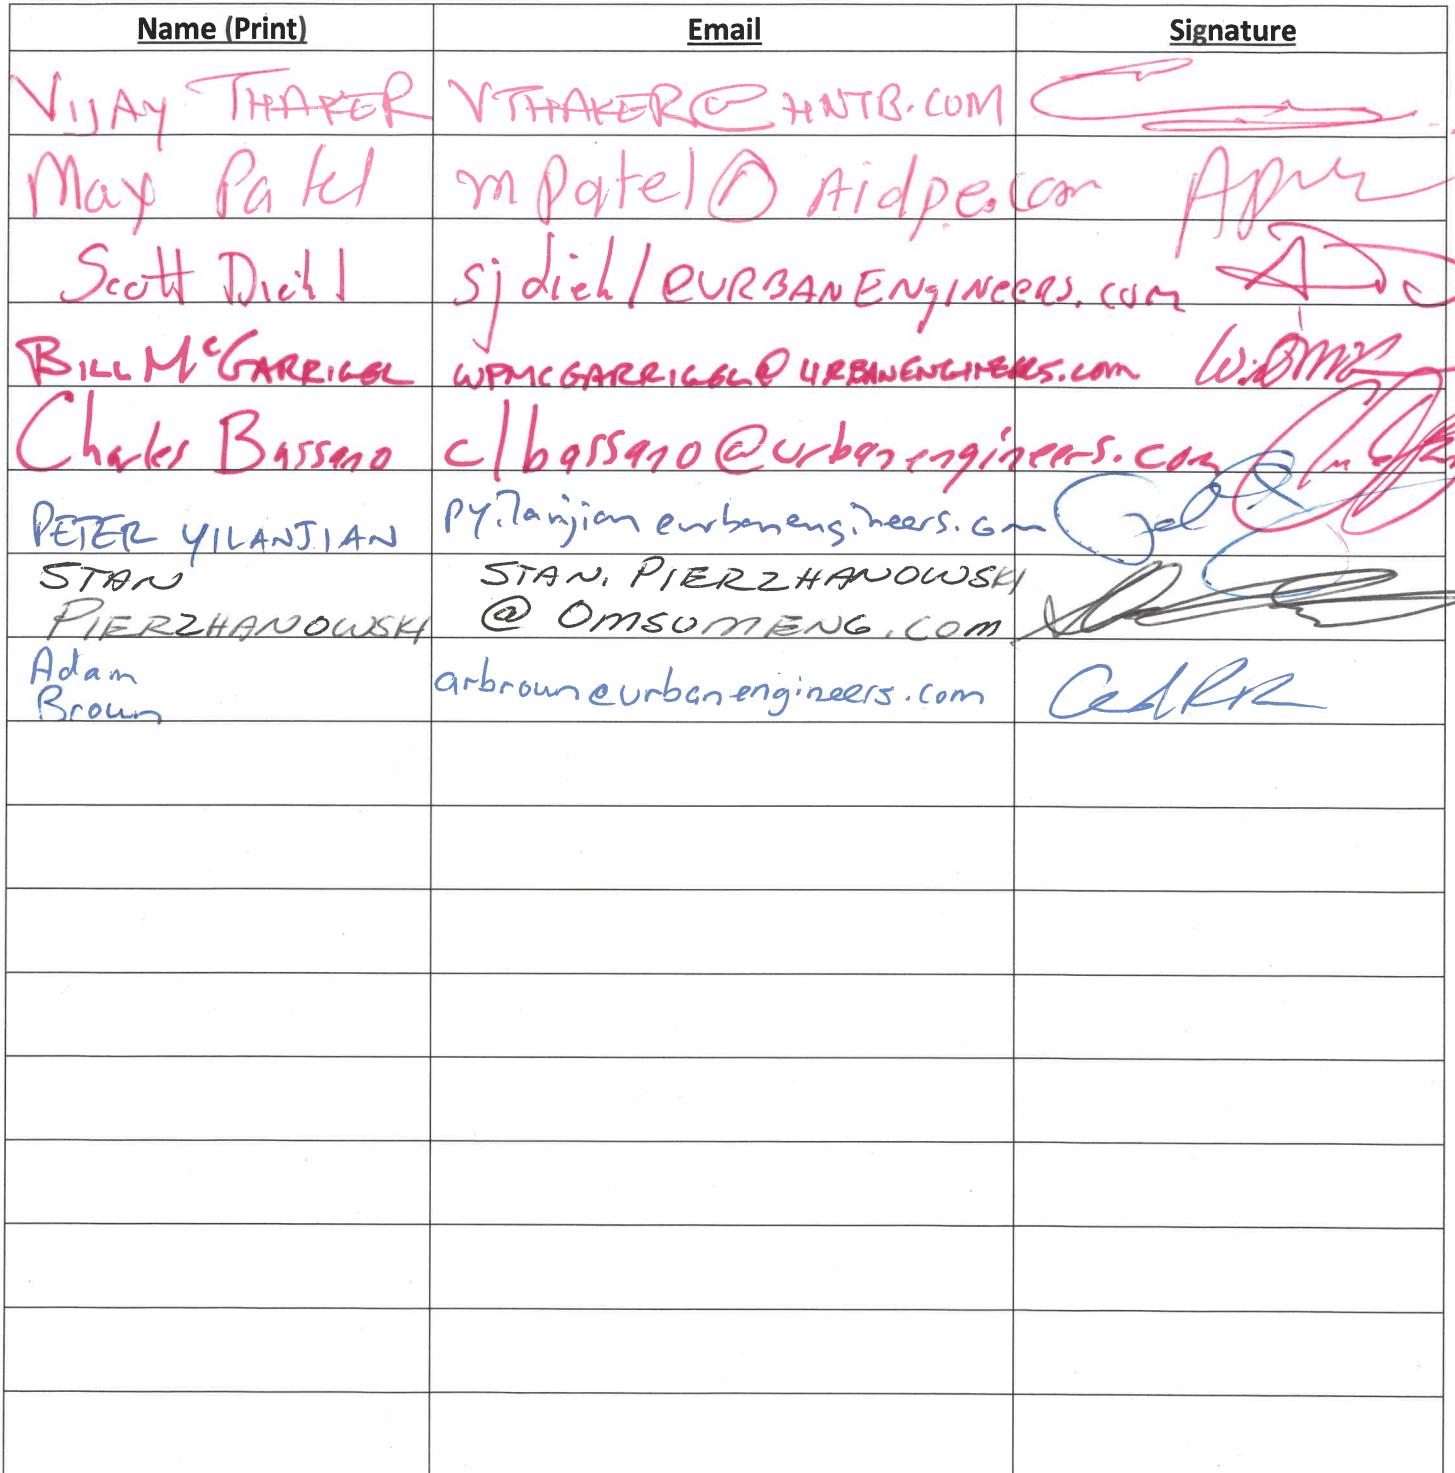 Name (Print) Email Signature
VIJAY THAKER VTHAKER@HNTB.COM
May Patel mpatel@Aidpe.com
Scott Diehl sjdiehl@URBANENgINeeRS.com
BILL McGARRIGEL WPMCGARRIGEL@URBANENGINEERS.com
Charles Bassano clbassano@urbanengineers.com
PETER YILANJIAN pyilanjian@urbanengineers.com
STAN STAN.PIERZHANOWSKI
PIERZHANOWSKI @OMSUMENG.COM
Adam
Brown arbrown@urbanengineers.com